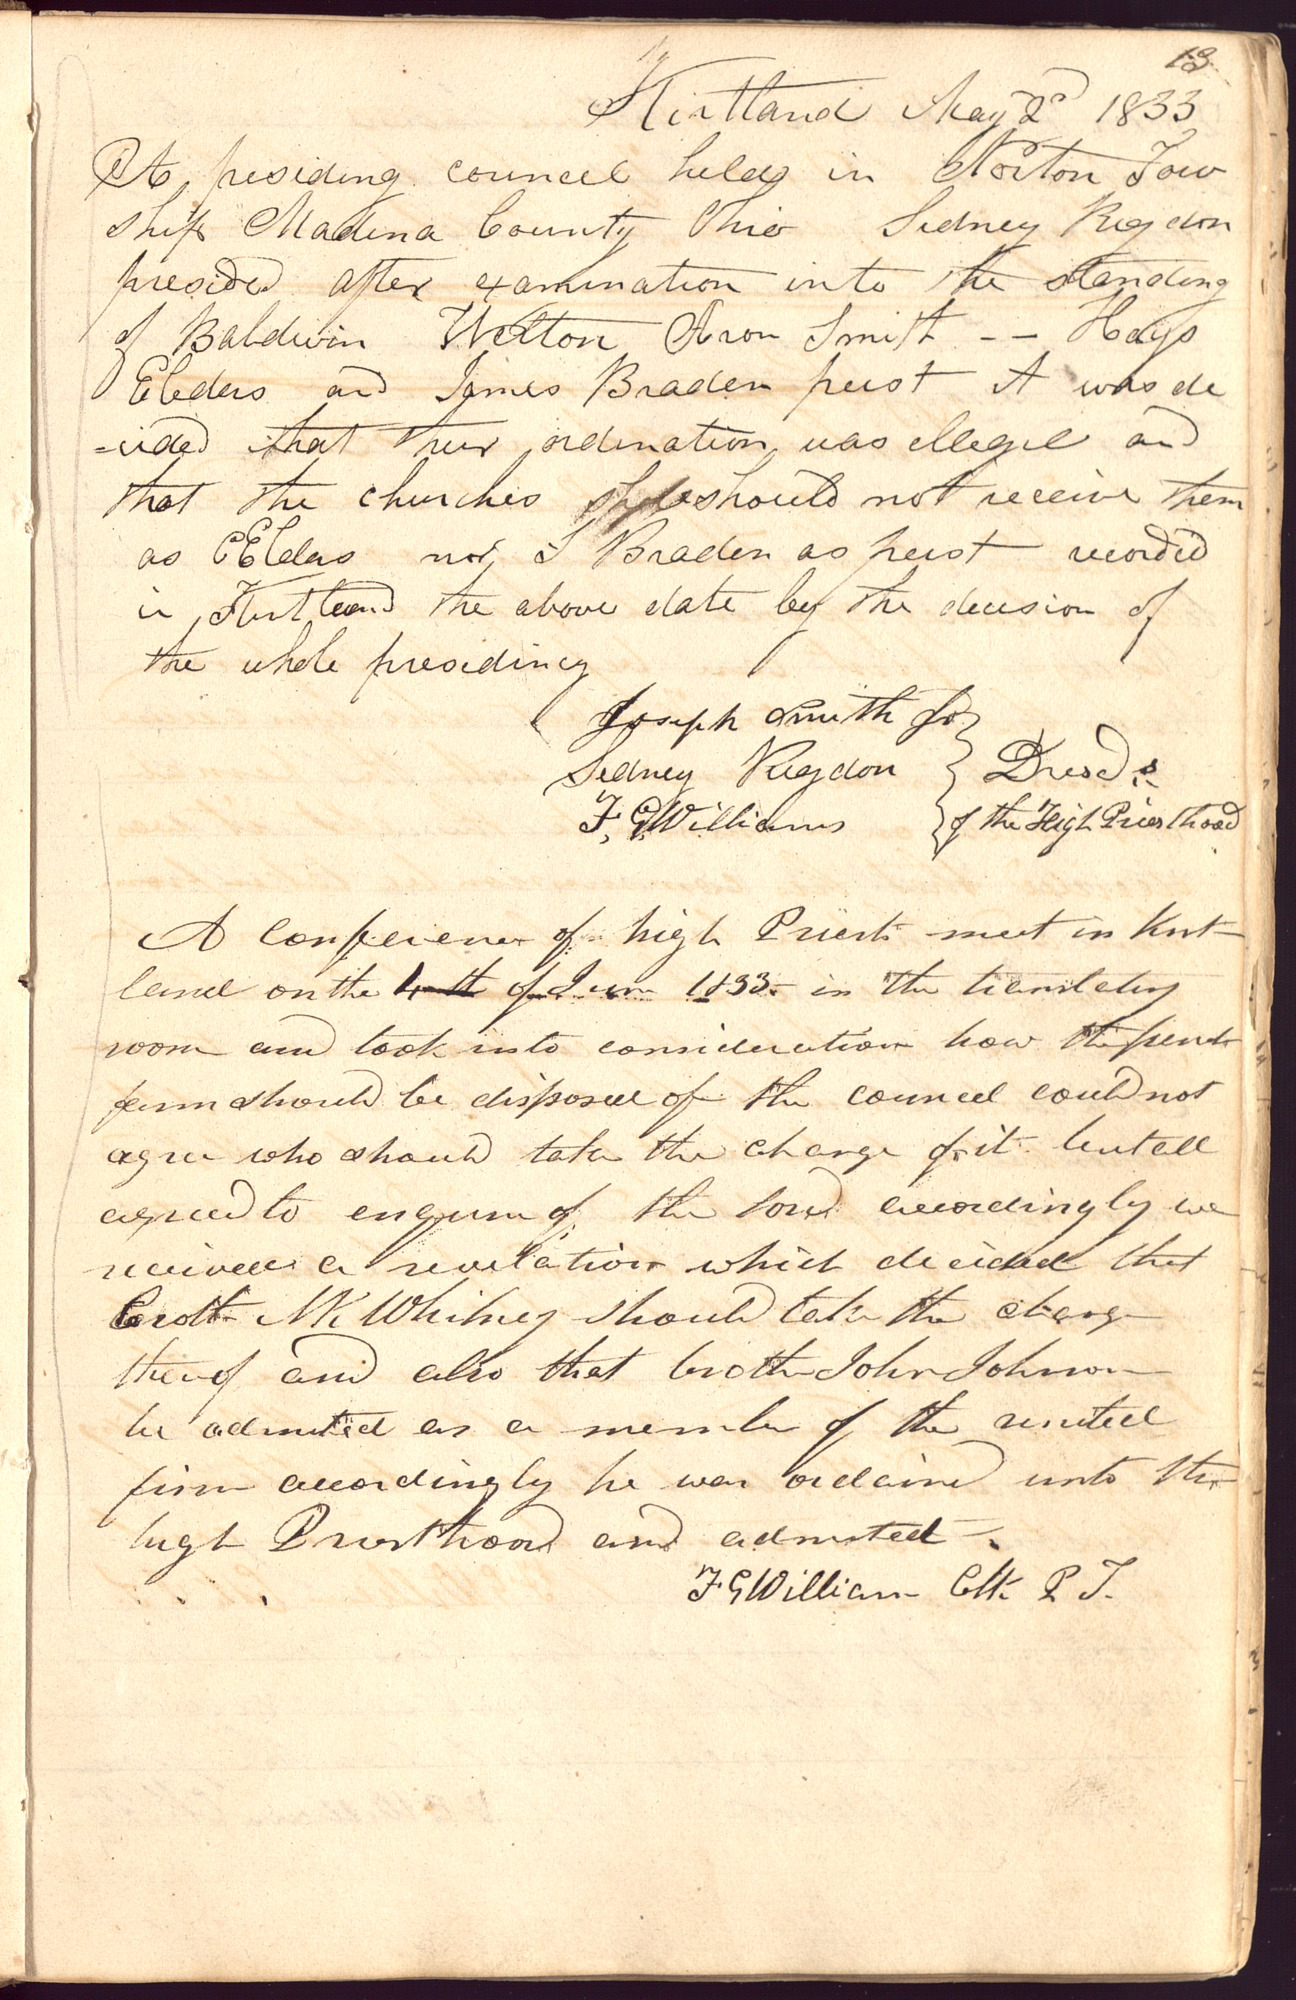 13
Kirtland May 2d 1833
A presiding council held in Norton Tow
ship Madina County Ohio Sidney Rigdon
presided after examination into the standing
of Baldwin Welton Aron Smith -- Hays
Elders and James Braden preist it was de
=cided that their ordination was ellegel and
that the churches should not receive them
as Elders nor J Braden as preist recorded
in Kirtland the above date by the decision of
the whole presidincy
Joseph Smith Jr
Sidney Rigdon } Presds
F. G. Williams of the High Priesthood
A conference of high Priests meet in Kirt-
land on the 4th of June 1833 in the translating
room and took into consideration how the french
farm should be disposed of the council could not
agree who should take the charge of it but all
agreed to enquire of the Lord accordingly we
received a revelation which decided that
broth N K Whitney should take the charge
thereof and also that brother John Johnson
be admitted as a member of the united
firm accordingly he was ordained unto the
high Priesthood and admitted
F G Williams Clk P T.